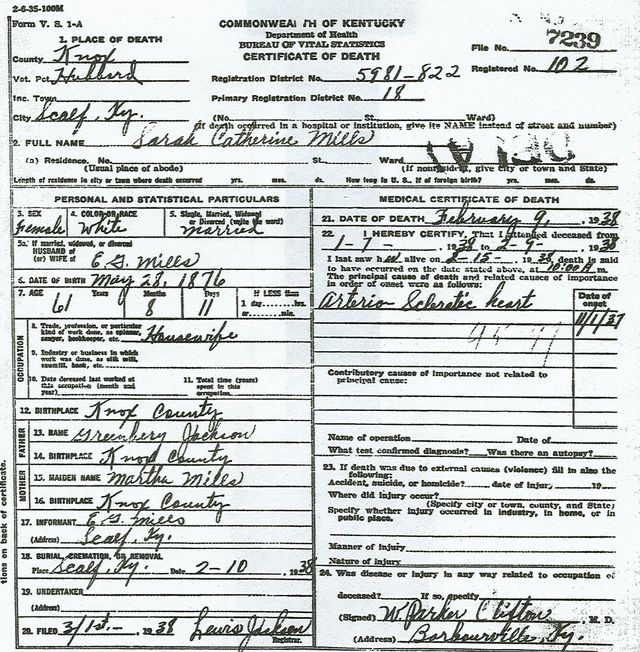 2-6-35-100M
Form V. S. 1-A
COMMONWEALTH OF KENTUCKY
Department of Health
BUREAU OF VITAL STATISTICS
CERTIFICATE OF DEATH
File No. 7239
Registered No. 102
1. PLACE OF DEATH
County Knox
Vot. Pct. Hubbard
Inc. Town
City Scalf, Ky.
Registration District No. 5981-822
Primary Registration District No. 18
(No. St. Ward)
(If death occurred in a hospital or institution, give its NAME instead of street and number)
2. FULL NAME Sarah Catherine Mills
(a) Residence. No. St. Ward
(Usual place of abode) (If nonresident, give city or town and State)
Length of residence in city or town where death occurred yrs. mos. ds. How long in U. S., if of foreign birth? yrs. mos. ds.
PERSONAL AND STATISTICAL PARTICULARS
3. SEX Female
4. COLOR OR RACE White
5. Single, Married, Widowed or Divorced (write the word) Married
5a. If married, widowed, or divorced
HUSBAND of
(or) WIFE of E. G. Mills
6. DATE OF BIRTH May 28, 1876
7. AGE 61 Years 8 Months 11 Days If LESS than
1 day hrs.
or min.
OCCUPATION
8. Trade, profession, or particular kind of work done, as spinner, sawyer, bookkeeper, etc. Housewife
9. Industry or business in which work was done, as silk mill, sawmill, bank, etc.
10. Date deceased last worked at this occupation (month and year)
11. Total time (years) spent in this occupation
12. BIRTHPLACE Knox County
FATHER
13. NAME Greenbery Jackson
14. BIRTHPLACE Knox County
MOTHER
15. MAIDEN NAME Martha Mills
16. BIRTHPLACE Knox County
17. INFORMANT E. G. Mills
(Address) Scalf, Ky.
18. BURIAL, CREMATION, OR REMOVAL
Place Scalf, Ky. Date 2-10 1938
19. UNDERTAKER
(Address)
20. FILED 3/1st- 1938 Lewis Jackson
Registrar.
MEDICAL CERTIFICATE OF DEATH
21. DATE OF DEATH February 9, 1938
22. I HEREBY CERTIFY, That I attended deceased from
1-7- 1938 to 2-9- 1938
I last saw her alive on 2-15- 1938 death is said
to have occurred on the date stated above, at 10:00 A m.
The principal cause of death and related causes of importance in order of onset were as follows:
Date of onset
Arterio Sclerotic heart 11/1/37
Contributory causes of importance not related to principal cause:
Name of operation Date of
What test confirmed diagnosis? Was there an autopsy?
23. If death was due to external causes (violence) fill in also the following:
Accident, suicide, or homicide? date of injury, 19
Where did injury occur?
(Specify city or town, county, and State)
Specify whether injury occurred in industry, in home, or in public place.
Manner of injury
Nature of injury
24. Was disease or injury in any way related to occupation of
deceased? If so, specify
(Signed) W. Parker Clifton, M. D.
(Address) Barbourville, Ky.
tions on back of certificate.